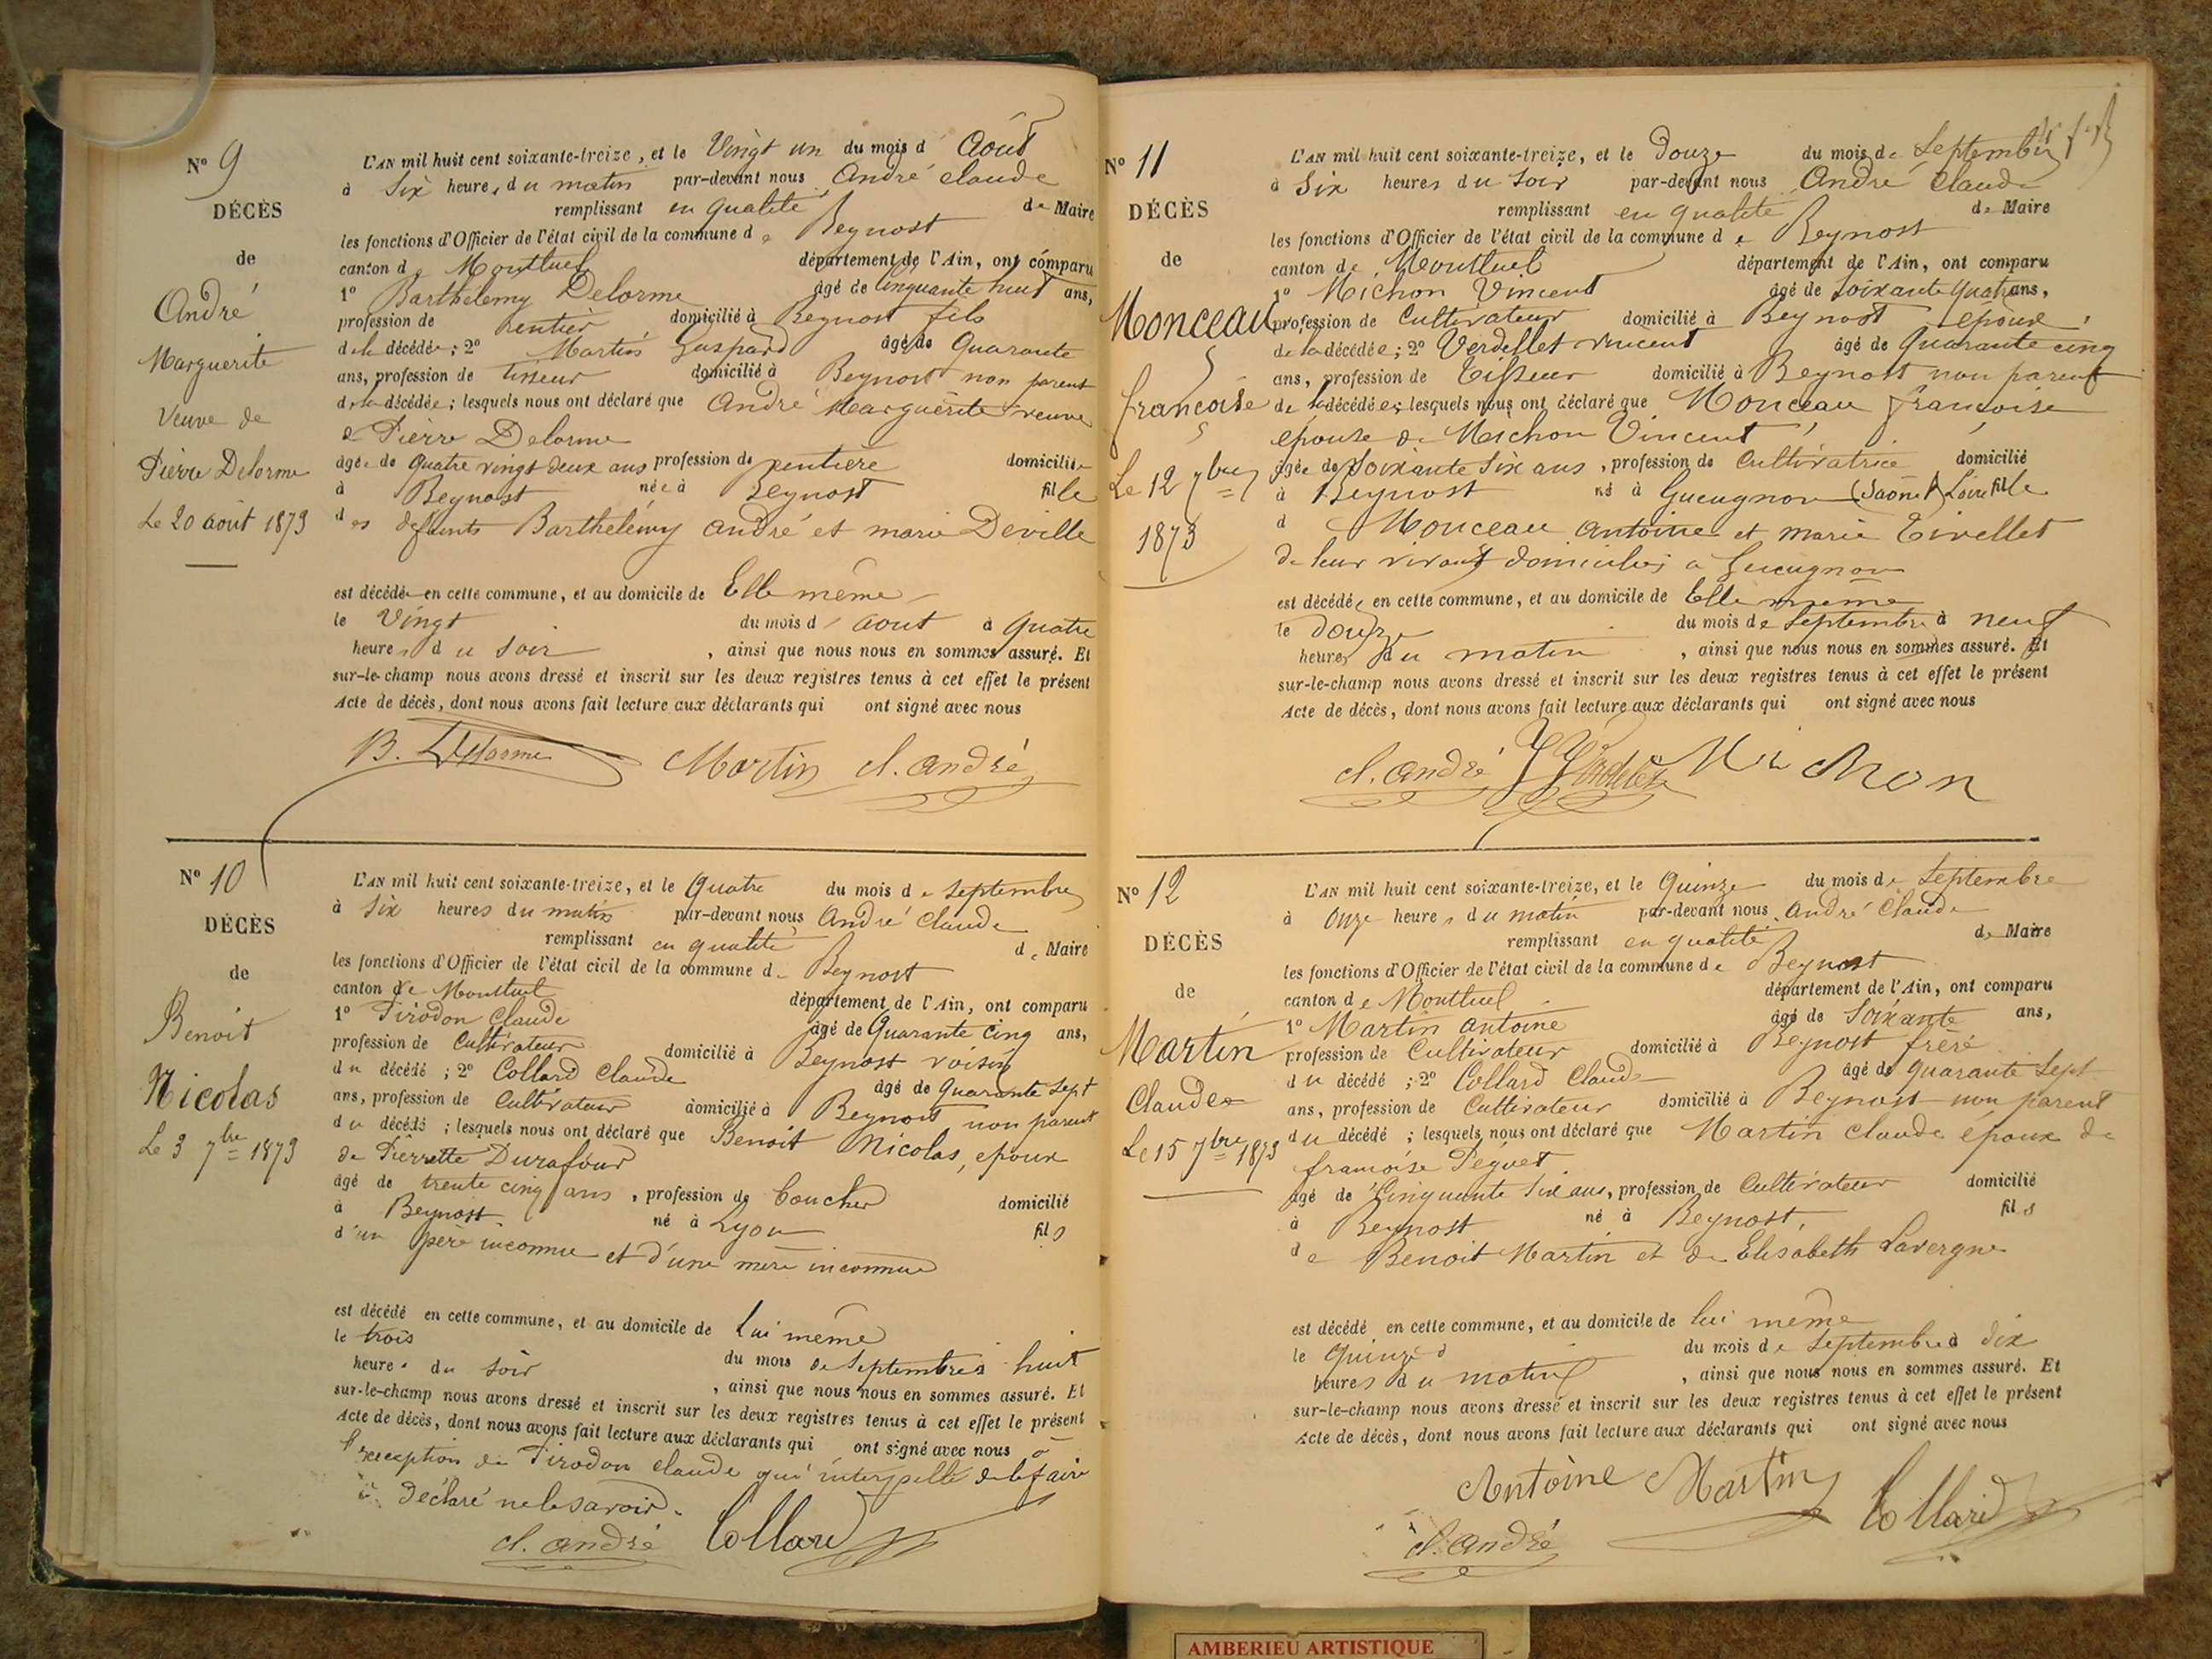 N° 9
DÉCÈS
de
André
Marguerite
Veuve de
Pierre Delorme
Le 20 août 1873
L'AN mil huit cent soixante-treize, et le Vingt un du mois d' Août
à Six heures du matin par-devant nous André Claude
remplissant en qualité de Maire
les fonctions d'Officier de l'état civil de la commune de Beynost
canton de Montluel département de l'Ain, ont comparu
1° Barthélemy Delorme âgé de Cinquante neuf ans,
profession de rentier domicilié à Beynost fils
de la décédée; 2° Martin Gaspard âgé de Quarante
ans, profession de tisseur domicilié à Beynost non parent
de la décédée; lesquels nous ont déclaré que André Marguerite veuve
de Pierre Delorme
âgée de quatre vingt deux ans profession de rentière domiciliée
à Beynost née à Beynost fille
des defunts Barthélémy André et marie Deville
est décédée en cette commune, et au domicile de Elle même
le Vingt du mois d' aout à quatre
heures du soir, ainsi que nous nous en sommes assuré. Et
sur-le-champ nous avons dressé et inscrit sur les deux registres tenus à cet effet le présent
Acte de décès, dont nous avons fait lecture aux déclarants qui ont signé avec nous
B. Delorme Martin cl. andré
N° 10
DÉCÈS
de
Benoit
Nicolas
Le 3 7bre 1873
L'AN mil huit cent soixante-treize, et le Quatre du mois de Septembre
à Six heures du matin par-devant nous André Claude
remplissant en qualité de Maire
les fonctions d'Officier de l'état civil de la commune de Beynost
canton de Montluel département de l'Ain, ont comparu
1° Pirodon Claude âgé de Quarante cinq ans,
profession de Cultivateur domicilié à Beynost voisin
du décédé; 2° Collard Claude âgé de Quarante sept
ans, profession de Cultivateur domicilié à Beynost non parent
du décédé; lesquels nous ont déclaré que Benoit Nicolas, epoux
de Pierrette Durafour
âgé de trente cinq ans, profession de Coucher domicilié
à Beynost né à Lyon fils
d'un père inconnu et d'une mère inconnue
est décédé en cette commune, et au domicile de Lui même
le trois du mois de Septembre à huit
heures du soir, ainsi que nous nous en sommes assuré. Et
sur-le-champ nous avons dressé et inscrit sur les deux registres tenus à cet effet le présent
Acte de décès, dont nous avons fait lecture aux déclarants qui ont signé avec nous à
l'exception de Pirodon Claude qui interpellé de le faire
à déclaré ne le savoir.
cl. andré Collard
N° 11
DÉCÈS
de
Monceau
françoise
Le 12 7bre
1873
L'AN mil huit cent soixante-treize, et le Douze du mois de Septembre
à Six heures du soir par-devant nous André Claude
remplissant en qualité de Maire
les fonctions d'Officier de l'état civil de la commune de Beynost
canton de Montluel département de l'Ain, ont comparu
1° Michon Vincent âgé de Soixante quatre ans,
profession de Cultivateur domicilié à Beynost époux
de la décédée; 2° Verdellet Vincent âgé de Quarante cinq
ans, profession de Tisseur domicilié à Beynost non parent
de la décédée; lesquels nous ont déclaré que Monceau françoise
épouse de Michon Vincent
âgée de Soixante Six ans, profession de Cultivatrice domicilié
à Beynost né à Gueugnon (Saône & Loire) fille
d Monceau Antoine et marie Tivellet
de leur vivant domiciliés à Gueugnon
est décédée en cette commune, et au domicile de Elle même
le Douze du mois de Septembre à neuf
heures du matin, ainsi que nous nous en sommes assuré. Et
sur-le-champ nous avons dressé et inscrit sur les deux registres tenus à cet effet le présent
Acte de décès, dont nous avons fait lecture aux déclarants qui ont signé avec nous
cl. andré Michon
N° 12
DÉCÈS
de
Martin
Claude
Le 15 7bre 1873
L'AN mil huit cent soixante-treize, et le Quinze du mois de Septembre
à Onze heures du matin par-devant nous André Claude
remplissant en qualité de Maire
les fonctions d'Officier de l'état civil de la commune de Beynost
canton de Montluel département de l'Ain, ont comparu
1° Martin Antoine âgé de Soixante ans,
profession de Cultivateur domicilié à Beynost frère
du décédé; 2° Collard Claude âgé de quarante Sept
ans, profession de Cultivateur domicilié à Beynost non parent
du décédé; lesquels nous ont déclaré que Martin Claude époux de
françoise Péguet
âgé de Cinquante Six ans, profession de Cultivateur domicilié
à Beynost né à Beynost, fils
de Benoit Martin et de Elisabeth Lavergne
est décédé en cette commune, et au domicile de lui même
le Quinze du mois de Septembre à dix
heures du matin, ainsi que nous nous en sommes assuré. Et
sur-le-champ nous avons dressé et inscrit sur les deux registres tenus à cet effet le présent
Acte de décès, dont nous avons fait lecture aux déclarants qui ont signé avec nous
Antoine Martin Collard
cl. andré
AMBERIEU ARTISTIQUE